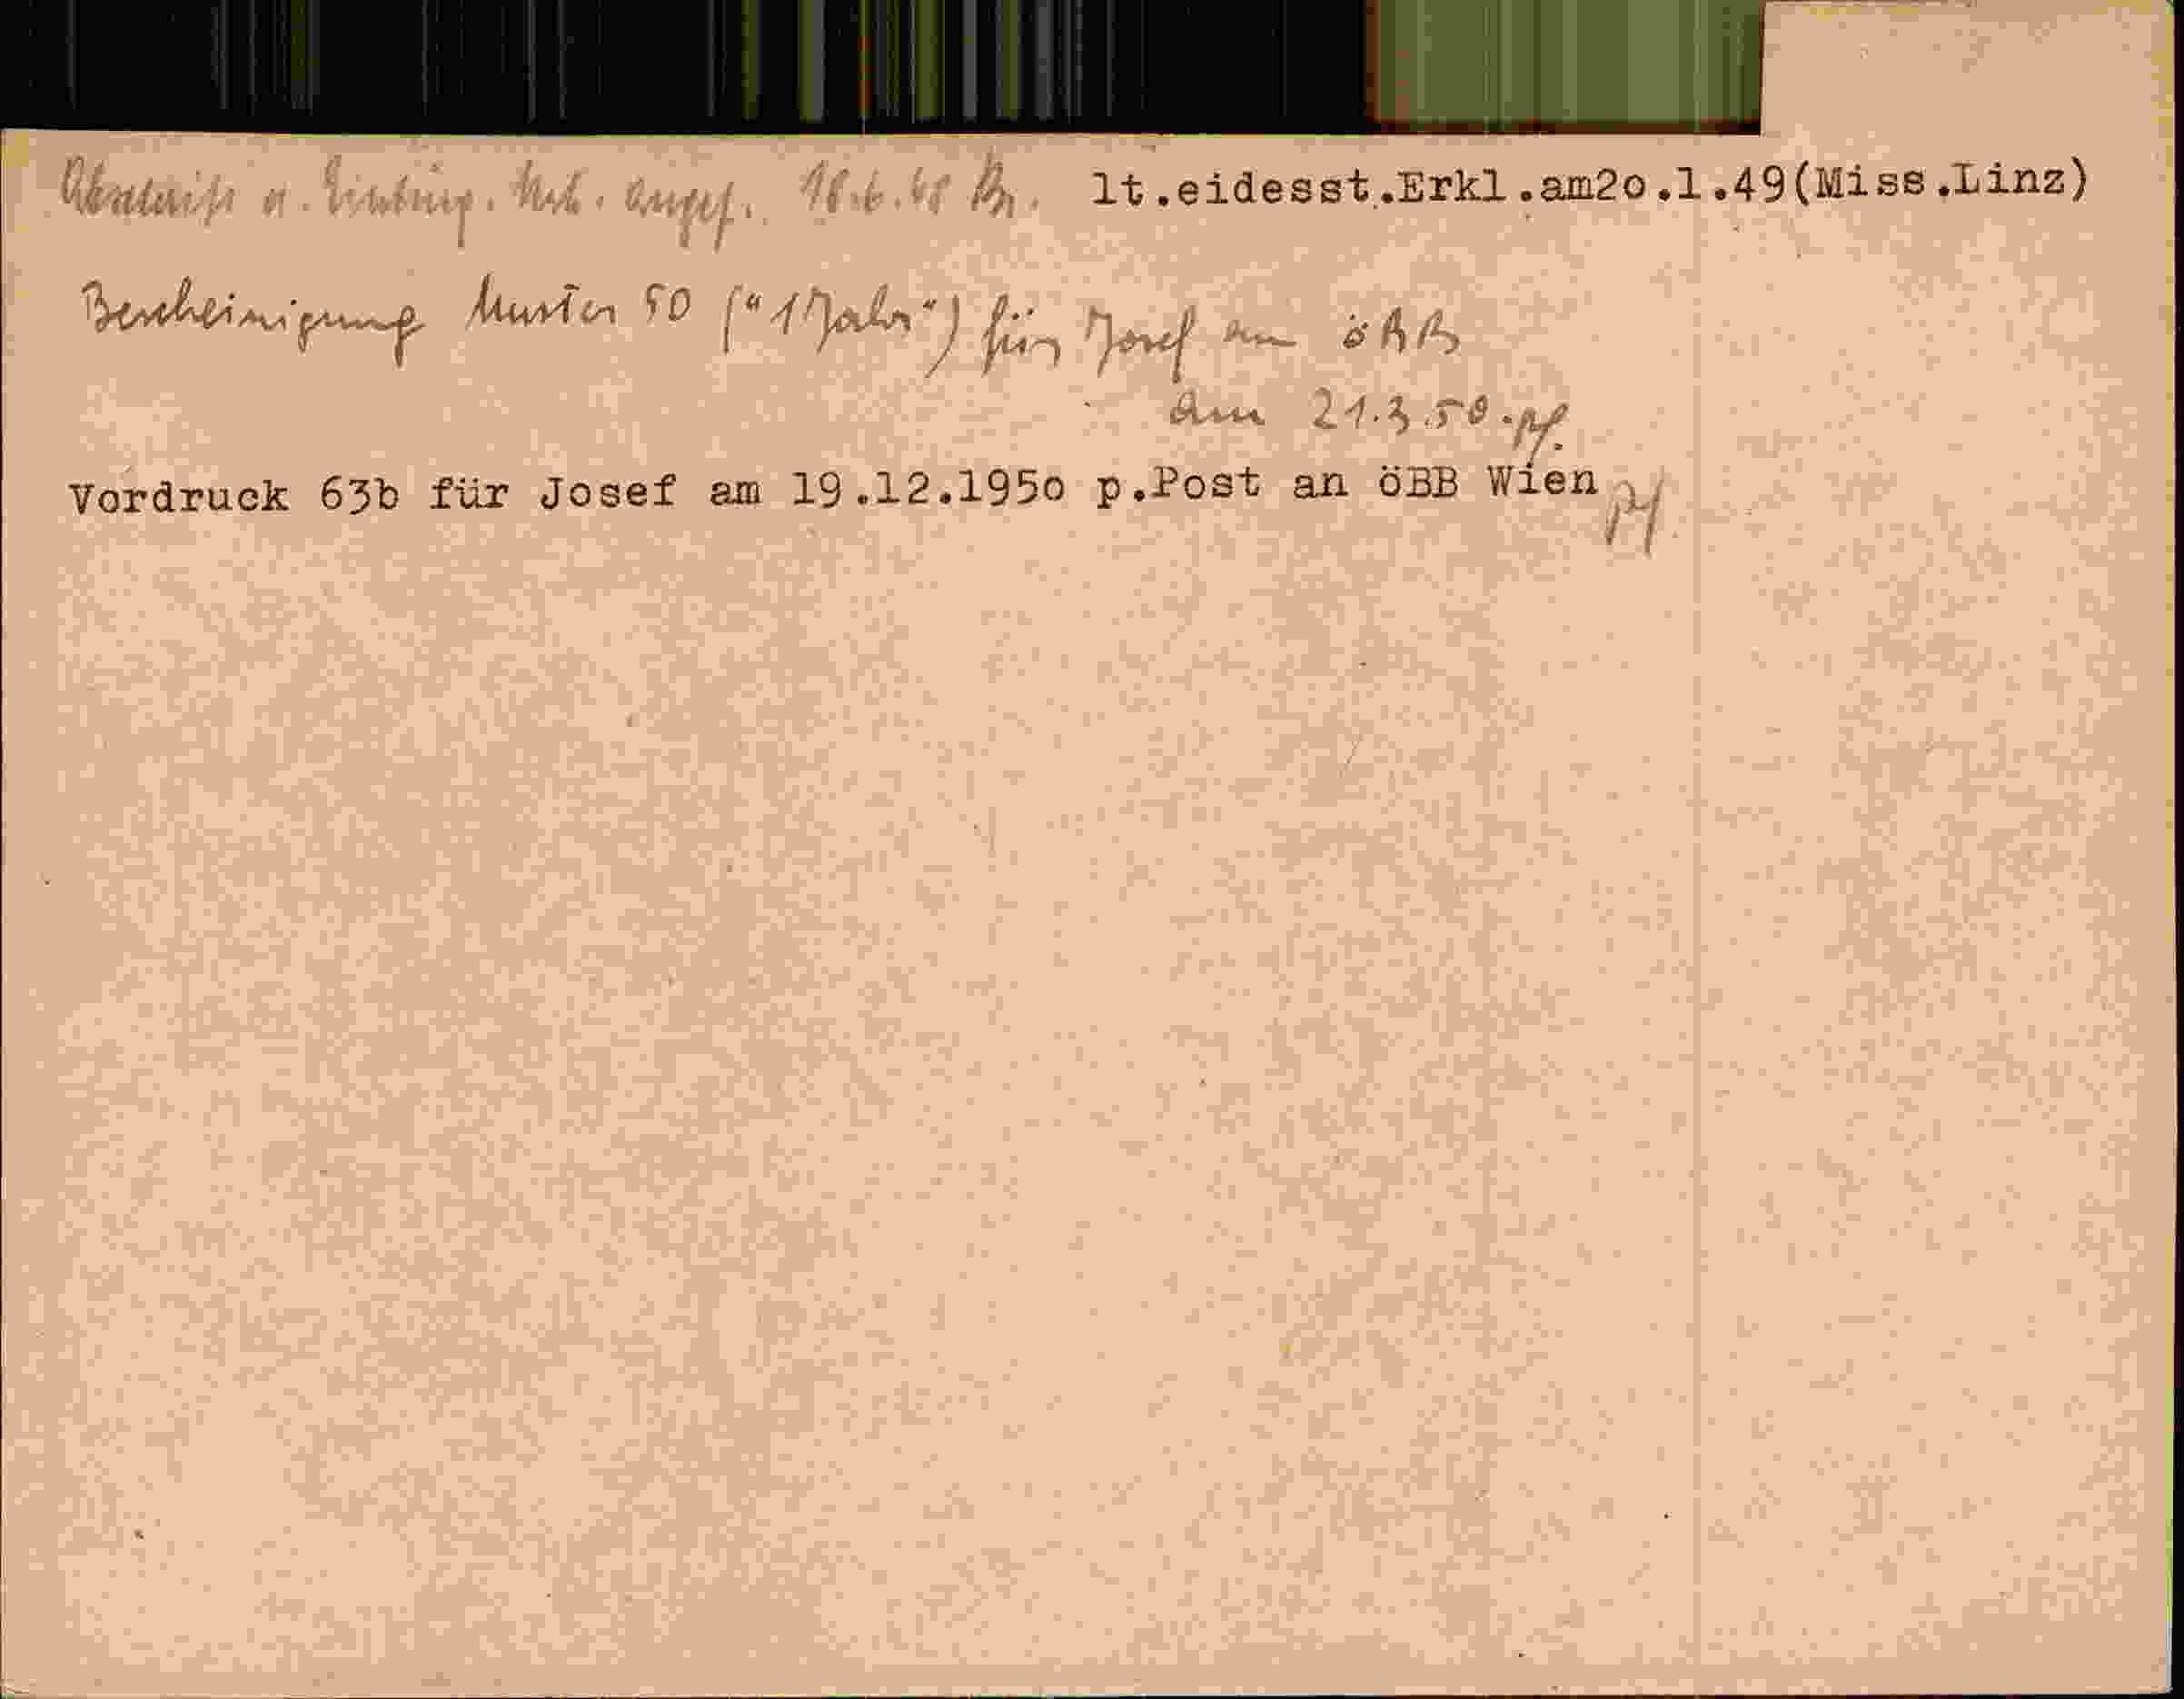 u. Einbürg. Urk. angef. 18.6.48 lt.eidesst.Erkl.am2o.1.49(Miss.Linz)
Bescheinigung Muster 50 ("1 Jahr") für Josef an öBB
am 21.3.50.
Vordruck 63b für Josef am 19.12.195o p.Post an öBB Wien